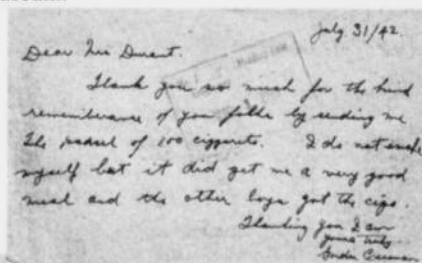 July 31/42.
Dear Mrs Durant.
Thank you so much for the kind
rememberance of you folks by sending me
the parcel of 100 ciggarets. I do not smoke
myself but it did get me a very good
meal and the other boys got the cigs.
Thanking you I am
yours truly